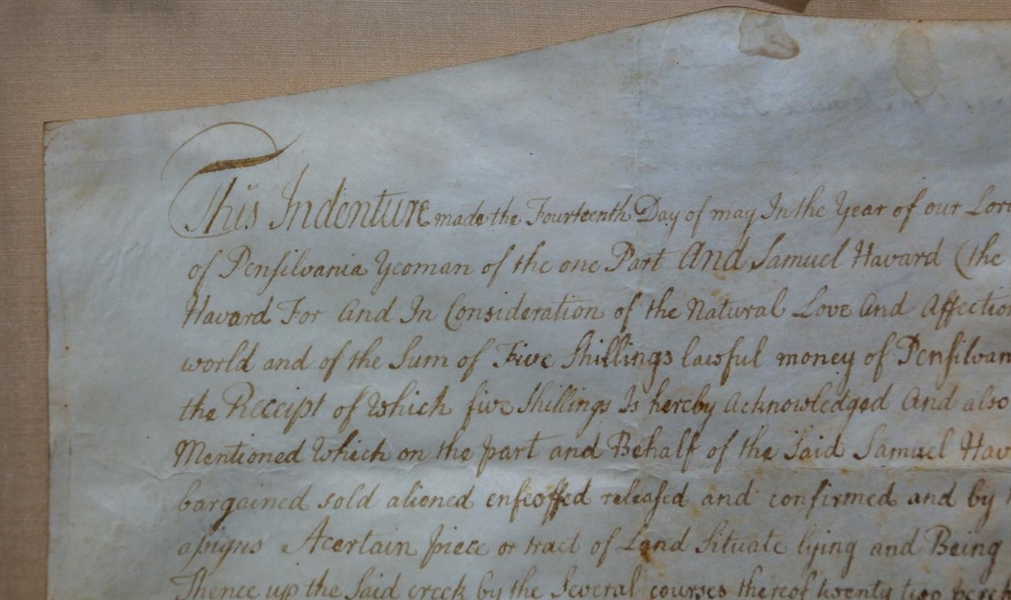 This Indenture made the Fourteenth Day of may In the Year of our Lord
of Pensilvania Yeoman of the one Part And Samuel Havard (the
Havard For And In Consideration of the Natural Love And Affection
world and of the Sum of Five Shillings lawful money of Pensilvan
the Receipt of Which five Shillings Is hereby Acknowledged And also
Mentioned Which on the part and Behalf of the Said Samuel Hav
bargained sold aliened enfeoffed released and confirmed and by
assigns A certain piece or tract of Land Situate lying and Being
Thence up the Said creek by the Several courses thereof twenty two perch